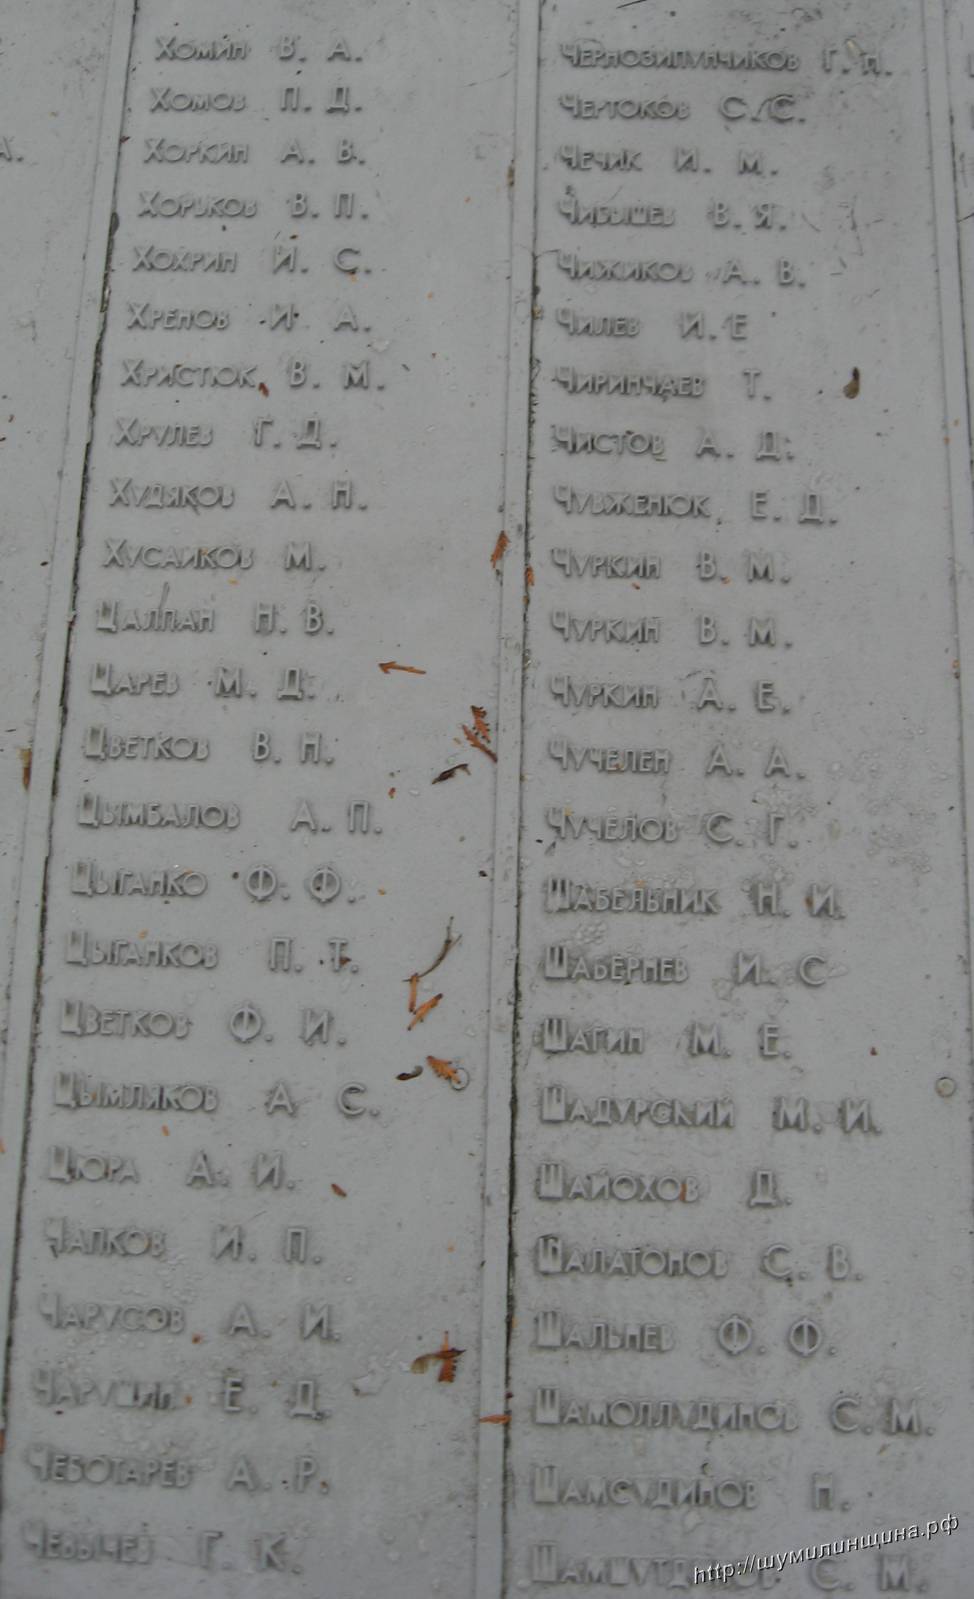 Хомин В. А.
Хомов П. Д.
Хоркин А. В.
Хорьков В. П.
Хохрин И. С.
Хренов И. А.
Христюк В. М.
Хрулев Г. Д.
Худяков А. Н.
Хусаиков М.
Цалпан Н. В.
Царев М. Д.
Цветков В. Н.
Цымбалов А. П.
Цыганко Ф. Ф.
Цыганков П. Т.
Цветков Ф. И.
Цымляков А С.
Цюра А. И.
Чапков И. П.
Чарусов А. И.
Чарушин Е. Д.
Чеботарев А. Р.
Чевычев Г. К.
Чернозипунчиков Г. Н.
Чертоков С. С.
Чечик И. М.
Чибышев В. Я.
Чижиков А. В.
Чилев И. Е
Чиринчаев Т.
Чистов А. Д.
Чувженюк Е. Д.
Чуркин В. М.
Чуркин В. М.
Чуркин А. Е.
Чучелен А. А.
Чучелов С. Г.
Шабельник Н. И.
Шавернев И. С
Шагин М. Е.
Шадурский М. И.
Шайохов Д.
Шалатонов С. В.
Шальнев Ф. Ф.
Шамоллудинов С. М.
Шамсудинов Н.
Шамшутдинов С. М.
http://шумилинщина.рф